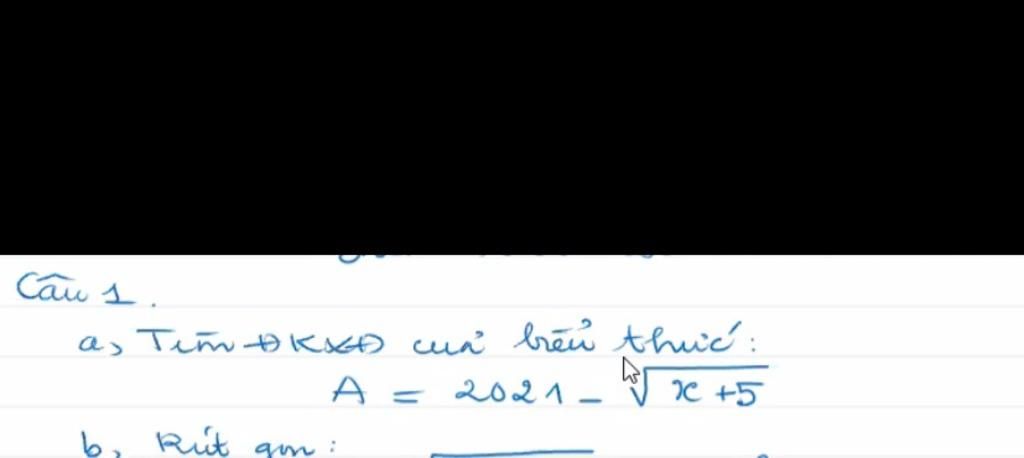 Câu 1.
a, Tìm ĐKXĐ của biểu thức:
A = 2021 - √(x+5)
b, Rút gọn: